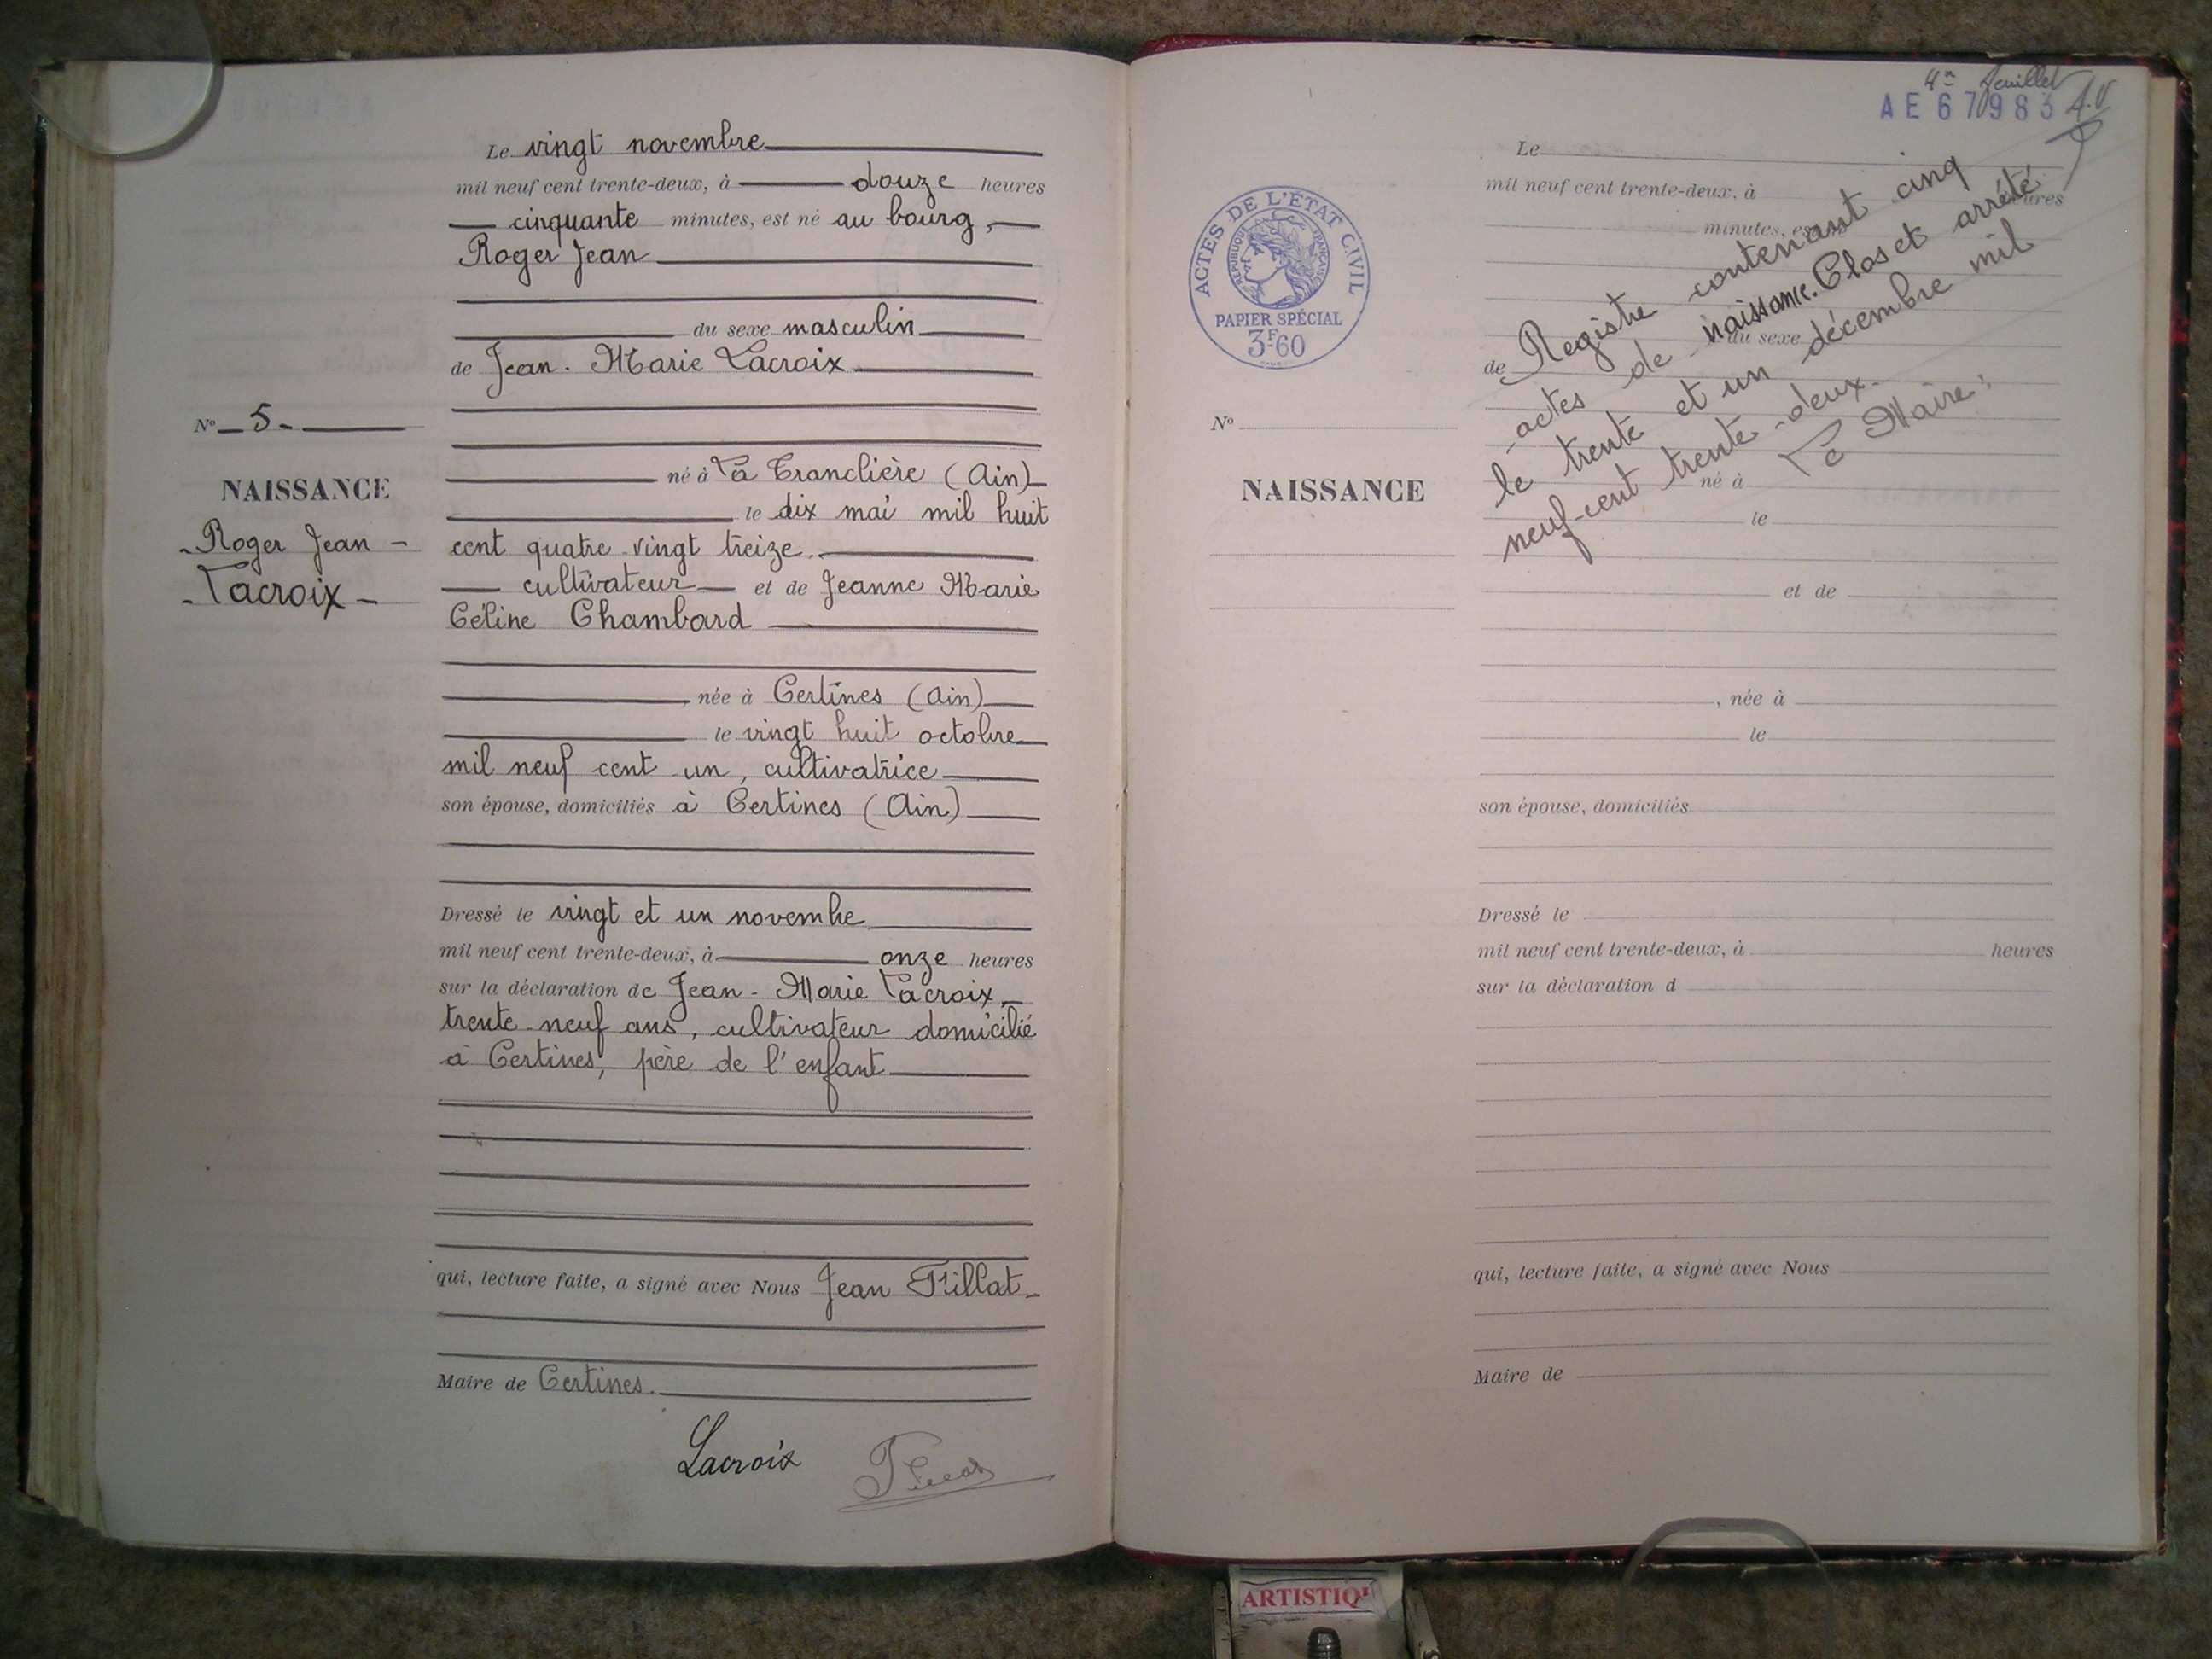 Le vingt novembre
mil neuf cent trente-deux, à douze heures
cinquante minutes, est né au bourg,
Roger Jean
du sexe masculin
de Jean-Marie Lacroix
N° 5
né à La Tranclière (Ain)
NAISSANCE
le dix mai mil huit
Roger Jean
cent quatre-vingt treize.
cultivateur et de Jeanne Marie
Lacroix
Céline Chambard
née à Certines (Ain)
le vingt huit octobre
mil neuf cent un, cultivatrice
son épouse, domiciliés à Certines (Ain)
Dressé le vingt et un novembre
mil neuf cent trente-deux, à onze heures
sur la déclaration de Jean-Marie Lacroix,
trente-neuf ans, cultivateur domicilié
à Certines, père de l'enfant
qui, lecture faite, a signé avec Nous Jean Fillat
Maire de Certines.
Lacroix
4e feuillet
AE 67983
Le
mil neuf cent trente-deux, à heures
minutes, est
ACTES DE L'ÉTAT CIVIL
RÉPUBLIQUE FRANÇAISE
PAPIER SPÉCIAL
3F60
du sexe
de
Registre contenant cinq
actes de naissance. Clos et arrêté
le trente et un décembre mil
neuf-cent trente-deux.
Le Maire:
N°
NAISSANCE
né à
le
et de
, née à
le
son épouse, domiciliés
Dressé le
mil neuf cent trente-deux, à heures
sur la déclaration d
qui, lecture faite, a signé avec Nous
Maire de
ARTISTIQ